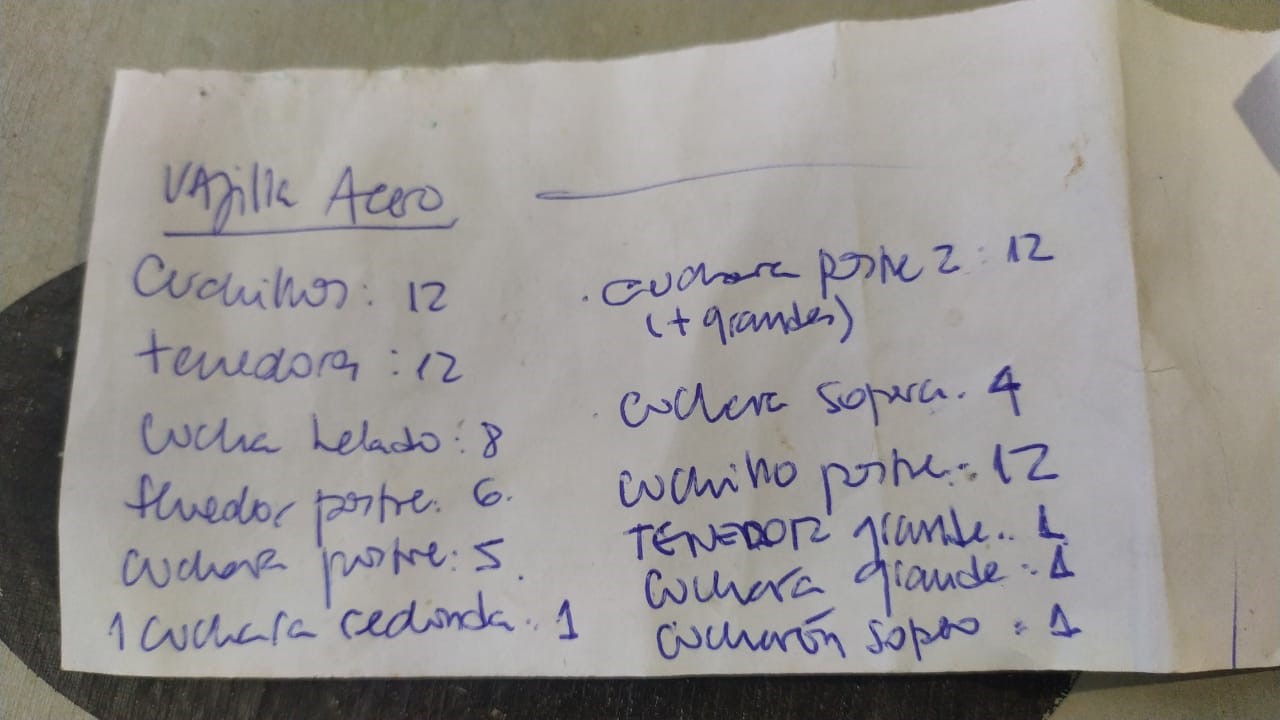 Vajilla Acero
Cuchillos: 12
tenedora: 12
Cucha helado: 8
tenedor postre: 6.
cuchara postre: 5.
1 cuchara redonda: 1
cuchara postre 2: 12
(+ grandes)
cuchara sopera. 4
cuchillo postre: 12
TENEDOR grande: 1
cuchara grande: 1
cucharón sopero: 1